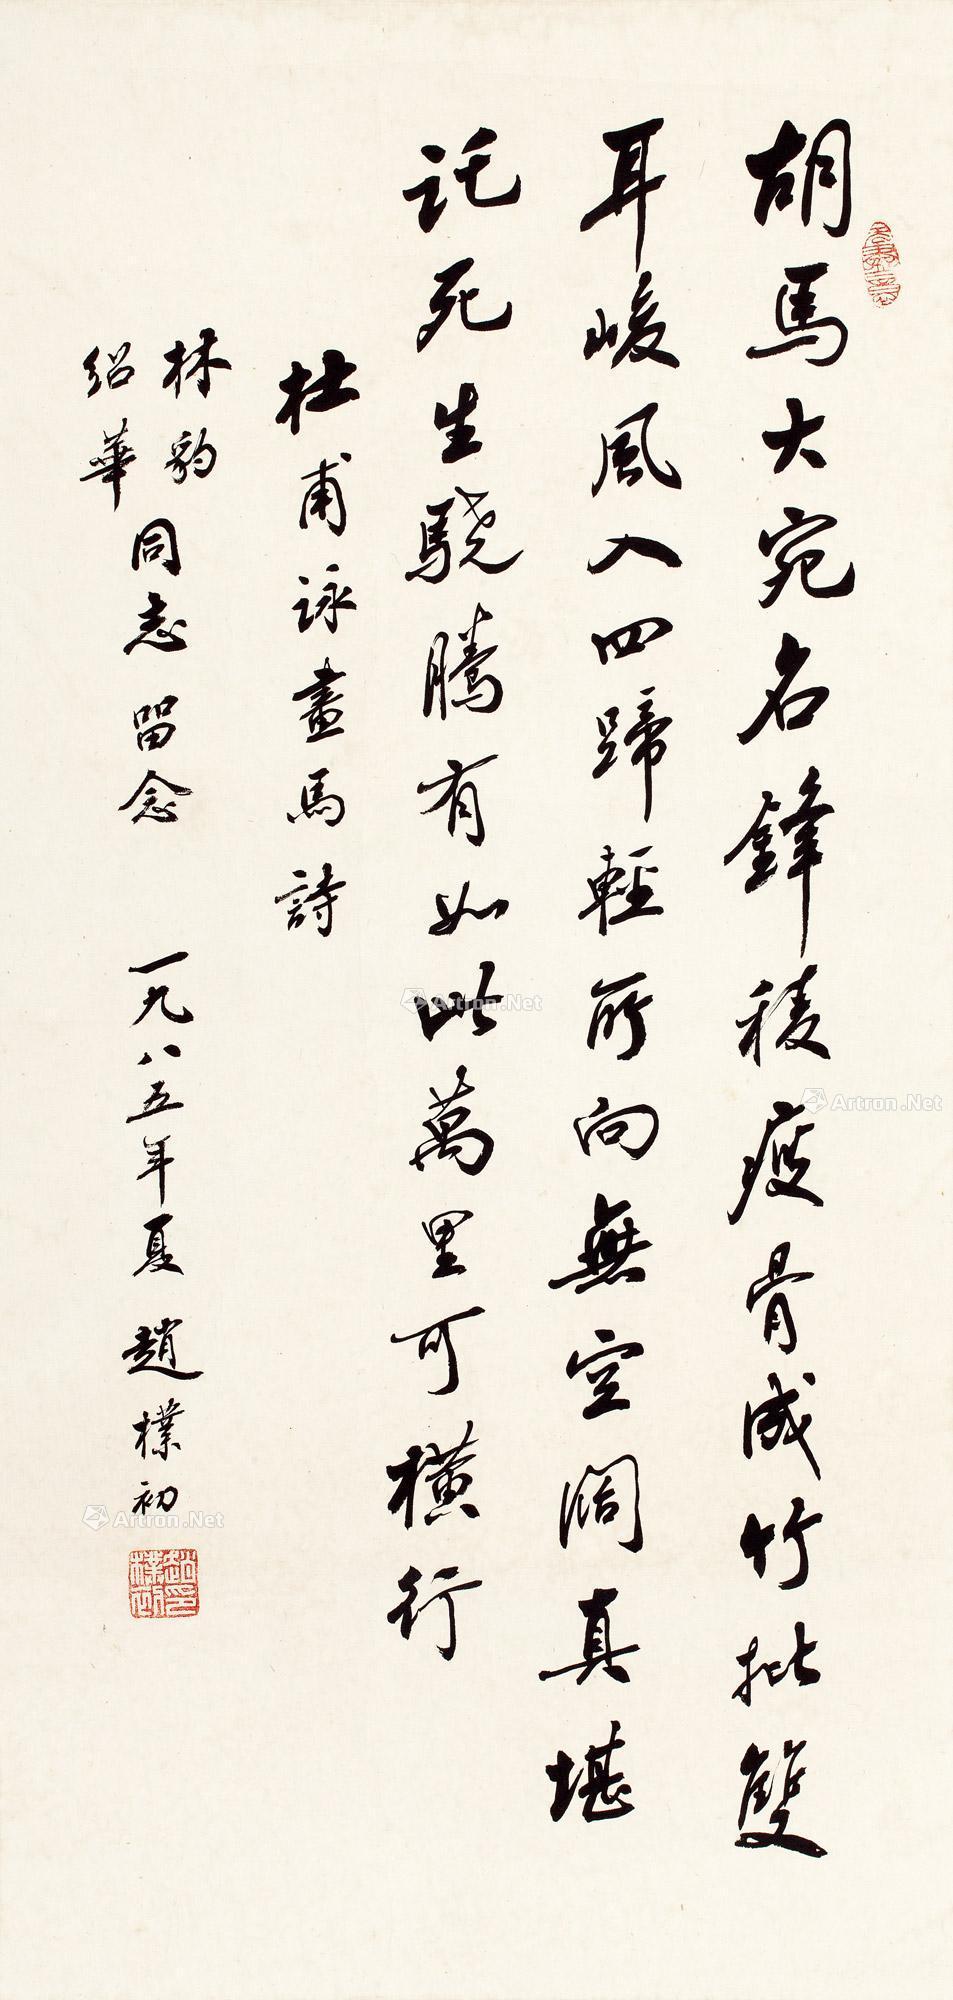 胡馬大宛名鋒稜瘦骨成竹批雙
耳峻風入四蹄輕所向無空闊真堪
託死生驍騰有如此萬里可橫行
杜甫詠畫馬詩
林豹
紹華
同志留念 一九八五年夏 趙樸初
趙樸初印
Artron.Net
Artron.Net
Artron.Net